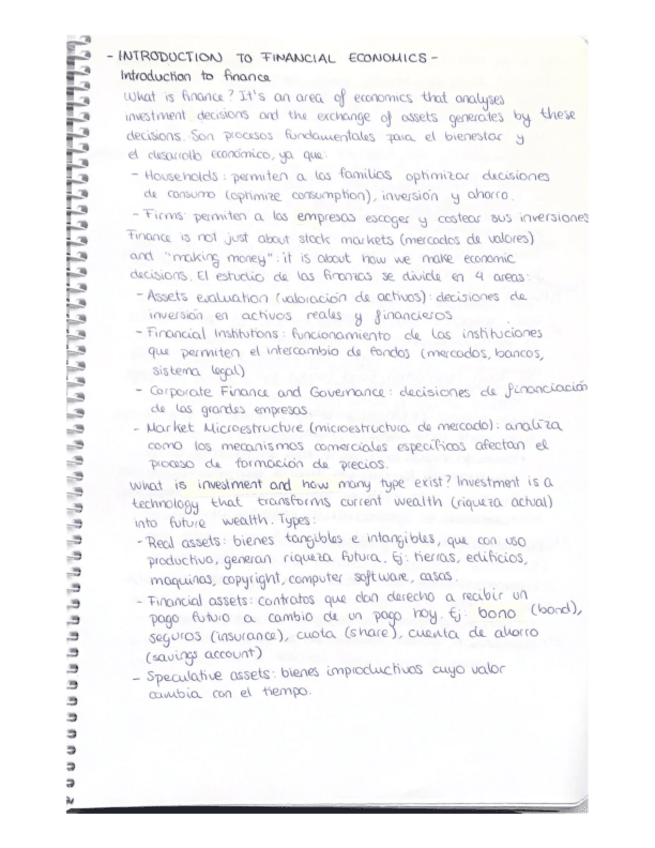 - INTRODUCTION TO FINANCIAL ECONOMICS -
Introduction to finance
What is finance? It's an area of economics that analyses
investment decisions and the exchange of assets generates by these
decisions. Son procesos fundamentales para el bienestar y
el desarrollo económico, ya que:
- Households: permiten a las familias optimizar decisiones
de consumo (optimize consumption), inversión y ahorro.
- Firms: permiten a las empresas escoger y costear sus inversiones
Finance is not just about stock markets (mercados de valores)
and "making money": it is about how we make economic
decisions. El estudio de las finanzas se divide en 4 areas:
- Assets evaluation (valoración de activos): decisiones de
inversión en activos reales y financieros
- Financial Institutions: funcionamiento de las instituciones
que permiten el intercambio de fondos (mercados, bancos,
sistema legal)
- Corporate Finance and Governance: decisiones de financiación
de las grandes empresas.
- Market Microestructure (microestructura de mercado): analiza
como los mecanismos comerciales especificos afectan el
proceso de formación de precios.
What is investment and how many type exist? Investment is a
technology that transforms current wealth (riqueza actual)
into future wealth. Types:
- Real assets: bienes tangibles e intangibles, que con uso
productivo, generan riqueza futura. Ej: tierras, edificios,
maquinas, copyright, computer software, casas.
- Financial assets: contratos que dan derecho a recibir un
pago futuro a cambio de un pago hoy. Ej: bono (bond),
seguros (insurance), cuota (share), cuenta de ahorro
(savings account)
- Speculative assets: bienes improductivos cuyo valor
cambia con el tiempo.